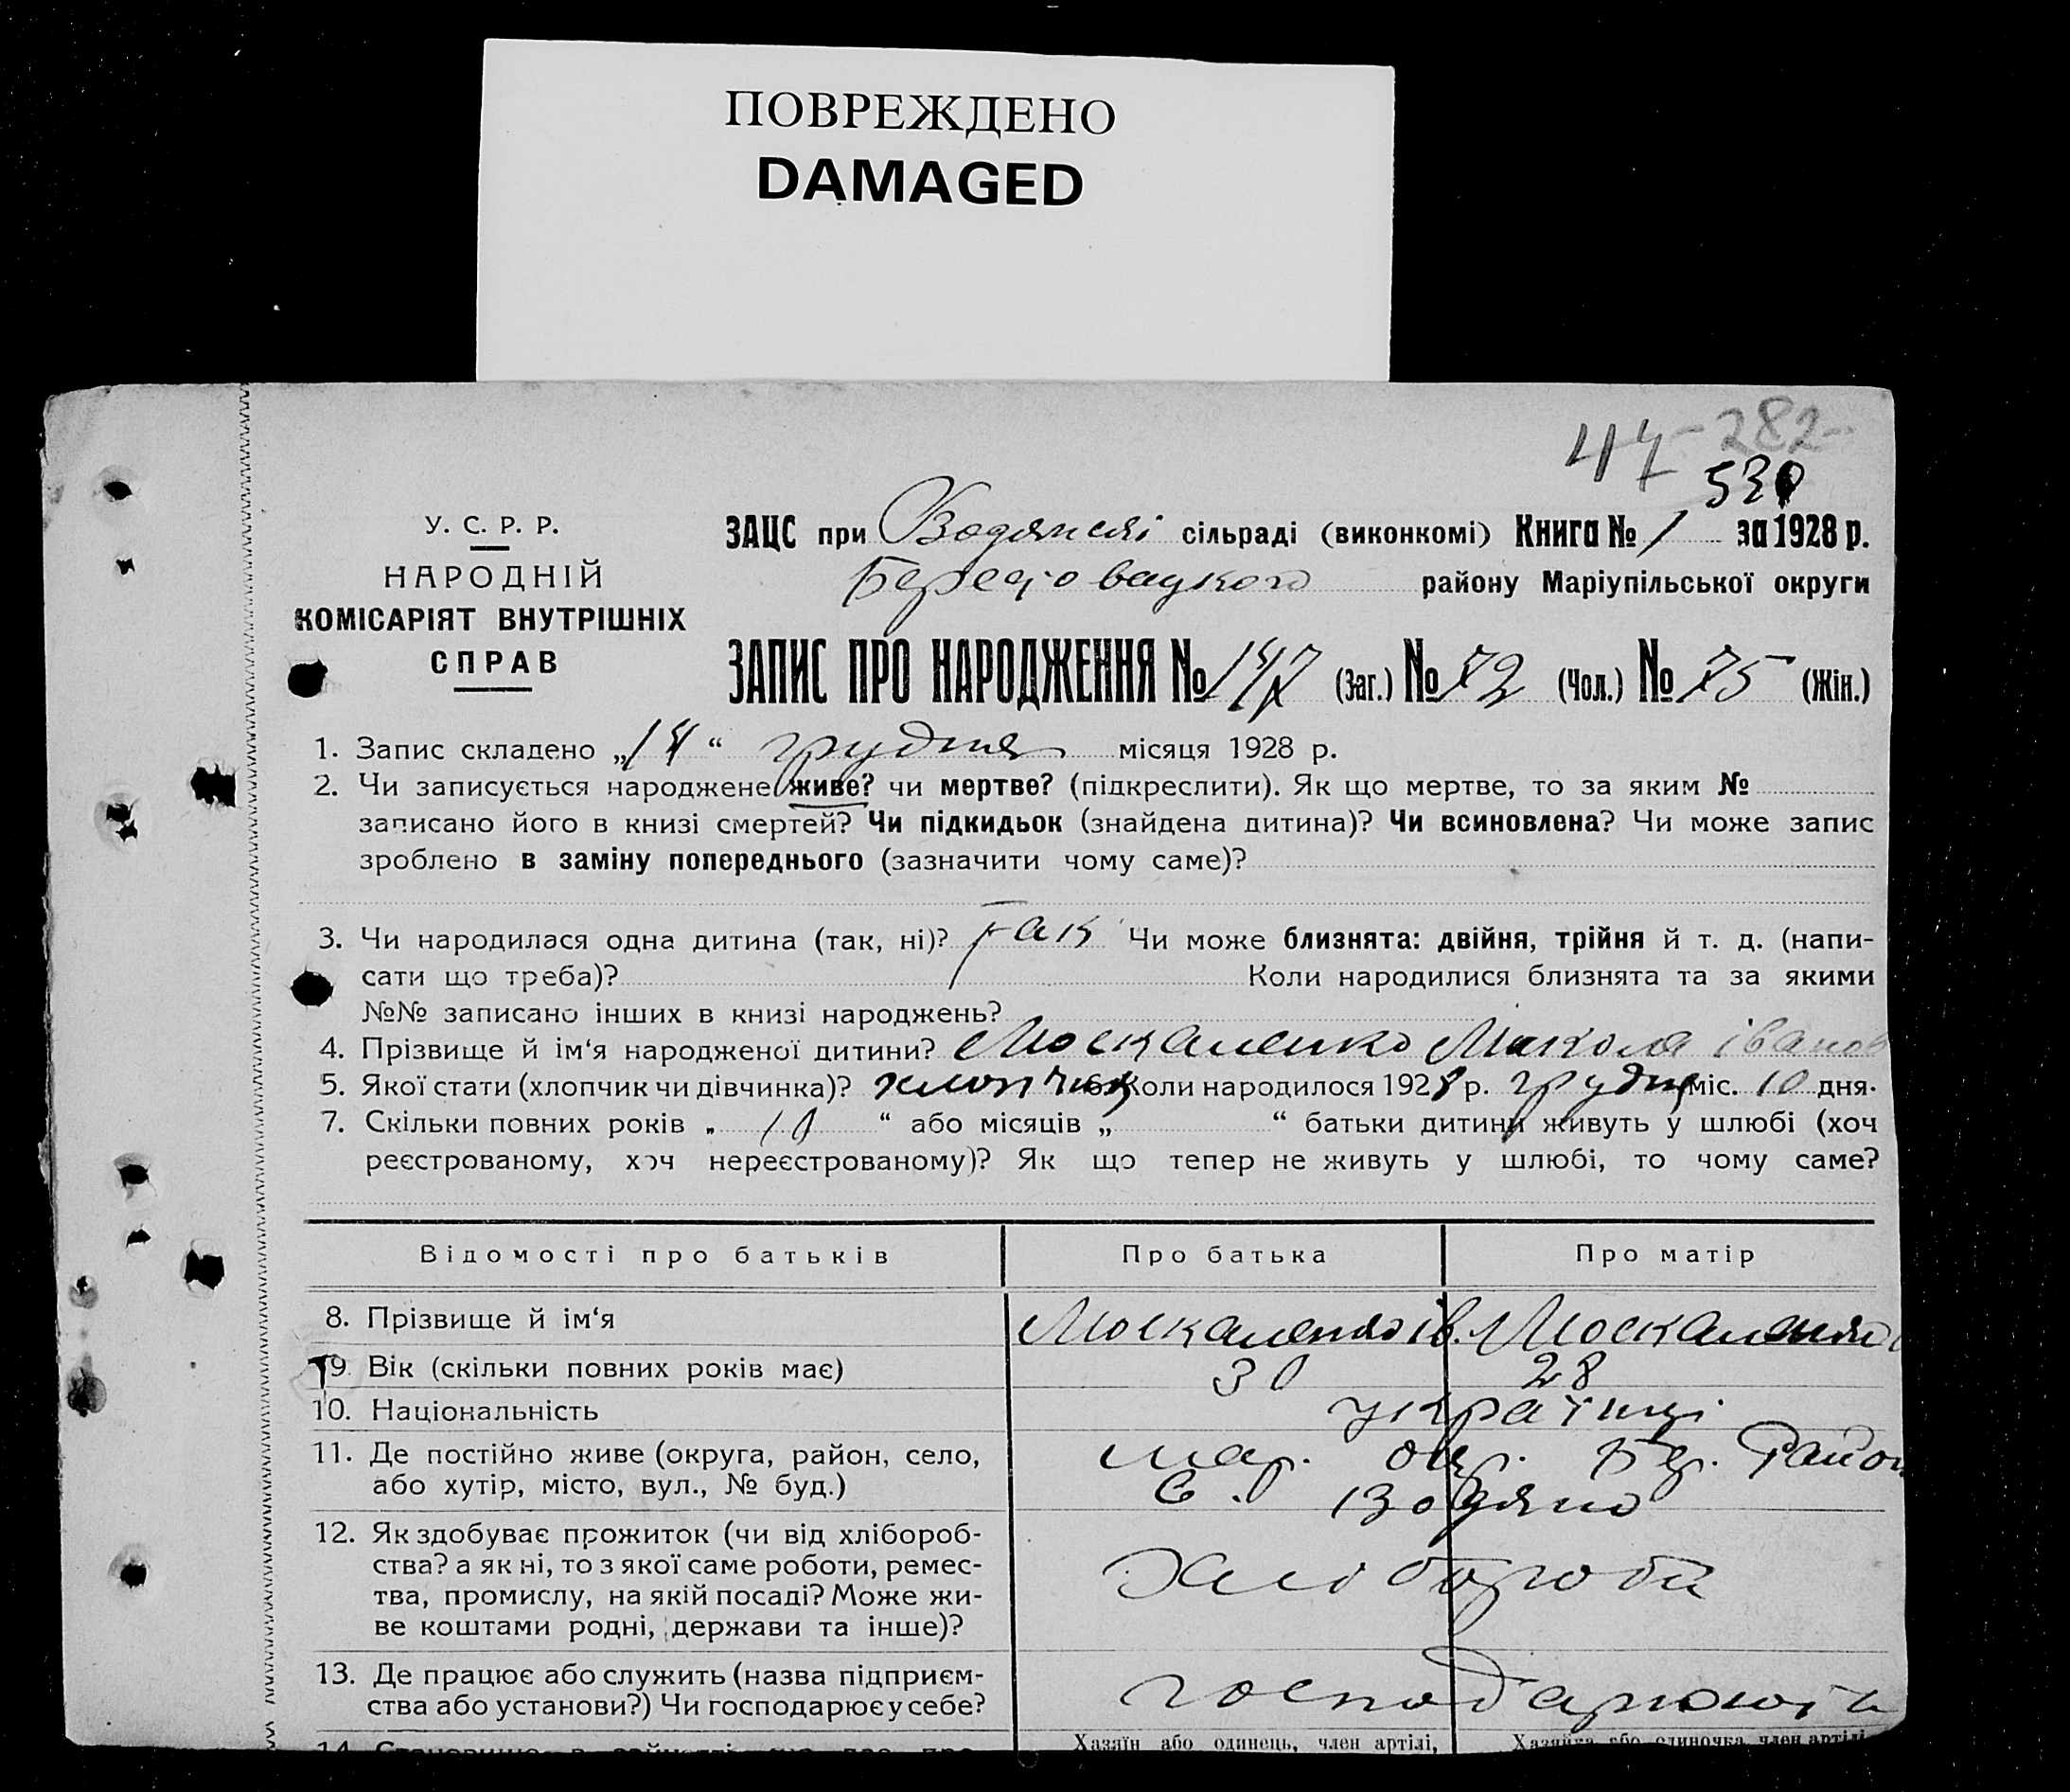 ПОВРЕЖДЕНО
DAMAGED
47 - 282 -
530
У. С. Р. Р.
НАРОДНІЙ
КОМІСАРІЯТ ВНУТРІШНІХ
СПРАВ
ЗАЦС при Водянській сільраді (виконкомі) Книга № 1 за 1928 р.
району Маріупільської округи
ЗАПИС ПРО НАРОДЖЕННЯ № 147 (Заг.) № 72 (Чол.) № 75 (Жін.)
1. Запис складено „14“ грудня місяця 1928 р.
2. Чи записується народжене живе? чи мертве? (підкреслити). Як що мертве, то за яким №
записано його в книзі смертей? Чи підкидьок (знайдена дитина)? Чи всиновлена? Чи може запис
зроблено в заміну попереднього (зазначити чому саме)?
3. Чи народилася одна дитина (так, ні)? так Чи може близнята: двійня, трійня й т. д. (напи-
сати що треба)? Коли народилися близнята та за якими
№№ записано інших в книзі народжень?
4. Прізвище й ім‘я народженої дитини? Москаленко Микола іванов
5. Якої стати (хлопчик чи дівчинка)? хлопчик 6. Коли народилося 1928 р. грудня міс. 10 дня.
7. Скільки повних років „ 10 “ або місяців „ “ батьки дитини живуть у шлюбі (хоч
реєстрованому, хоч нереєстрованому)? Як що тепер не живуть у шлюбі, то чому саме?
Відомості про батьків Про батька Про матір
8. Прізвище й ім‘я Москаленко ів. Москаленко
9. Вік (скільки повних років має) 30 28
10. Національність українці
11. Де постійно живе (округа, район, село, мар. окр. Бер. Район
або хутір, місто, вул., № буд.) с. Водяно
12. Як здобуває прожиток (чи від хлібороб-
ства? а як ні, то з якої саме роботи, ремес- Хлібороби
тва, промислу, на якій посаді? Може жи-
ве коштами родні, держави та інше)?
13. Де працює або служить (назва підприєм- господарюють
ства або установи?) Чи господарює у себе?
Хазяїн або одинець, член артілі, Хазяйка або одиночка, член артілі